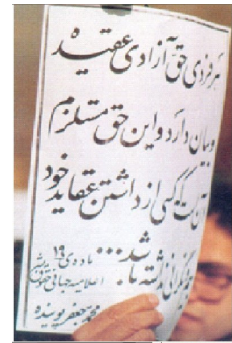 هر فردی حق آزادی عقیده
و بیان دارد و این حق مستلزم
آن است تا کسی از داشتن عقاید خود
بیم و نگرانی نداشته باشد...
ماده‌ی ۱۹
اعلامیه جهانی حقوق بشر
محمدجعفر پوینده